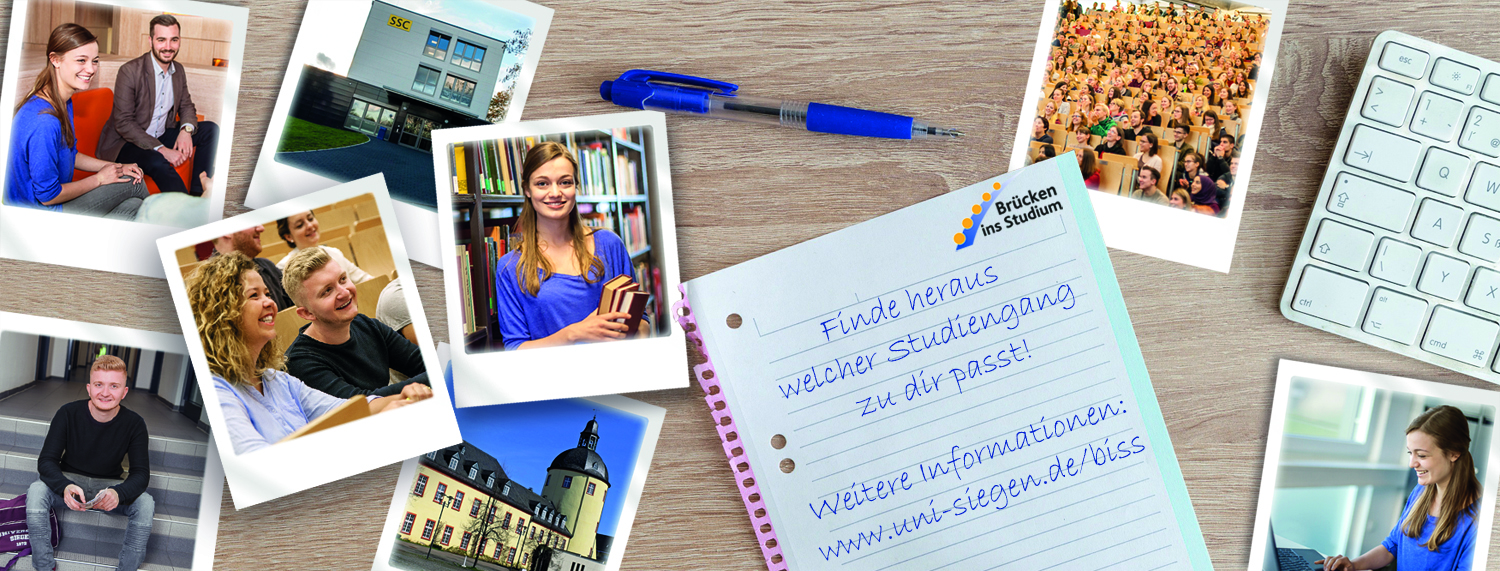 SSC
UNIVER
SIEGE
1972
Brücken
ins Studium
Finde heraus
welcher Studiengang
zu dir passt!
Weitere Informationen:
www.uni-siegen.de/biss
esc
>
<
1
2
Q
W
A
S
Y
X
ctrl
alt
cmd